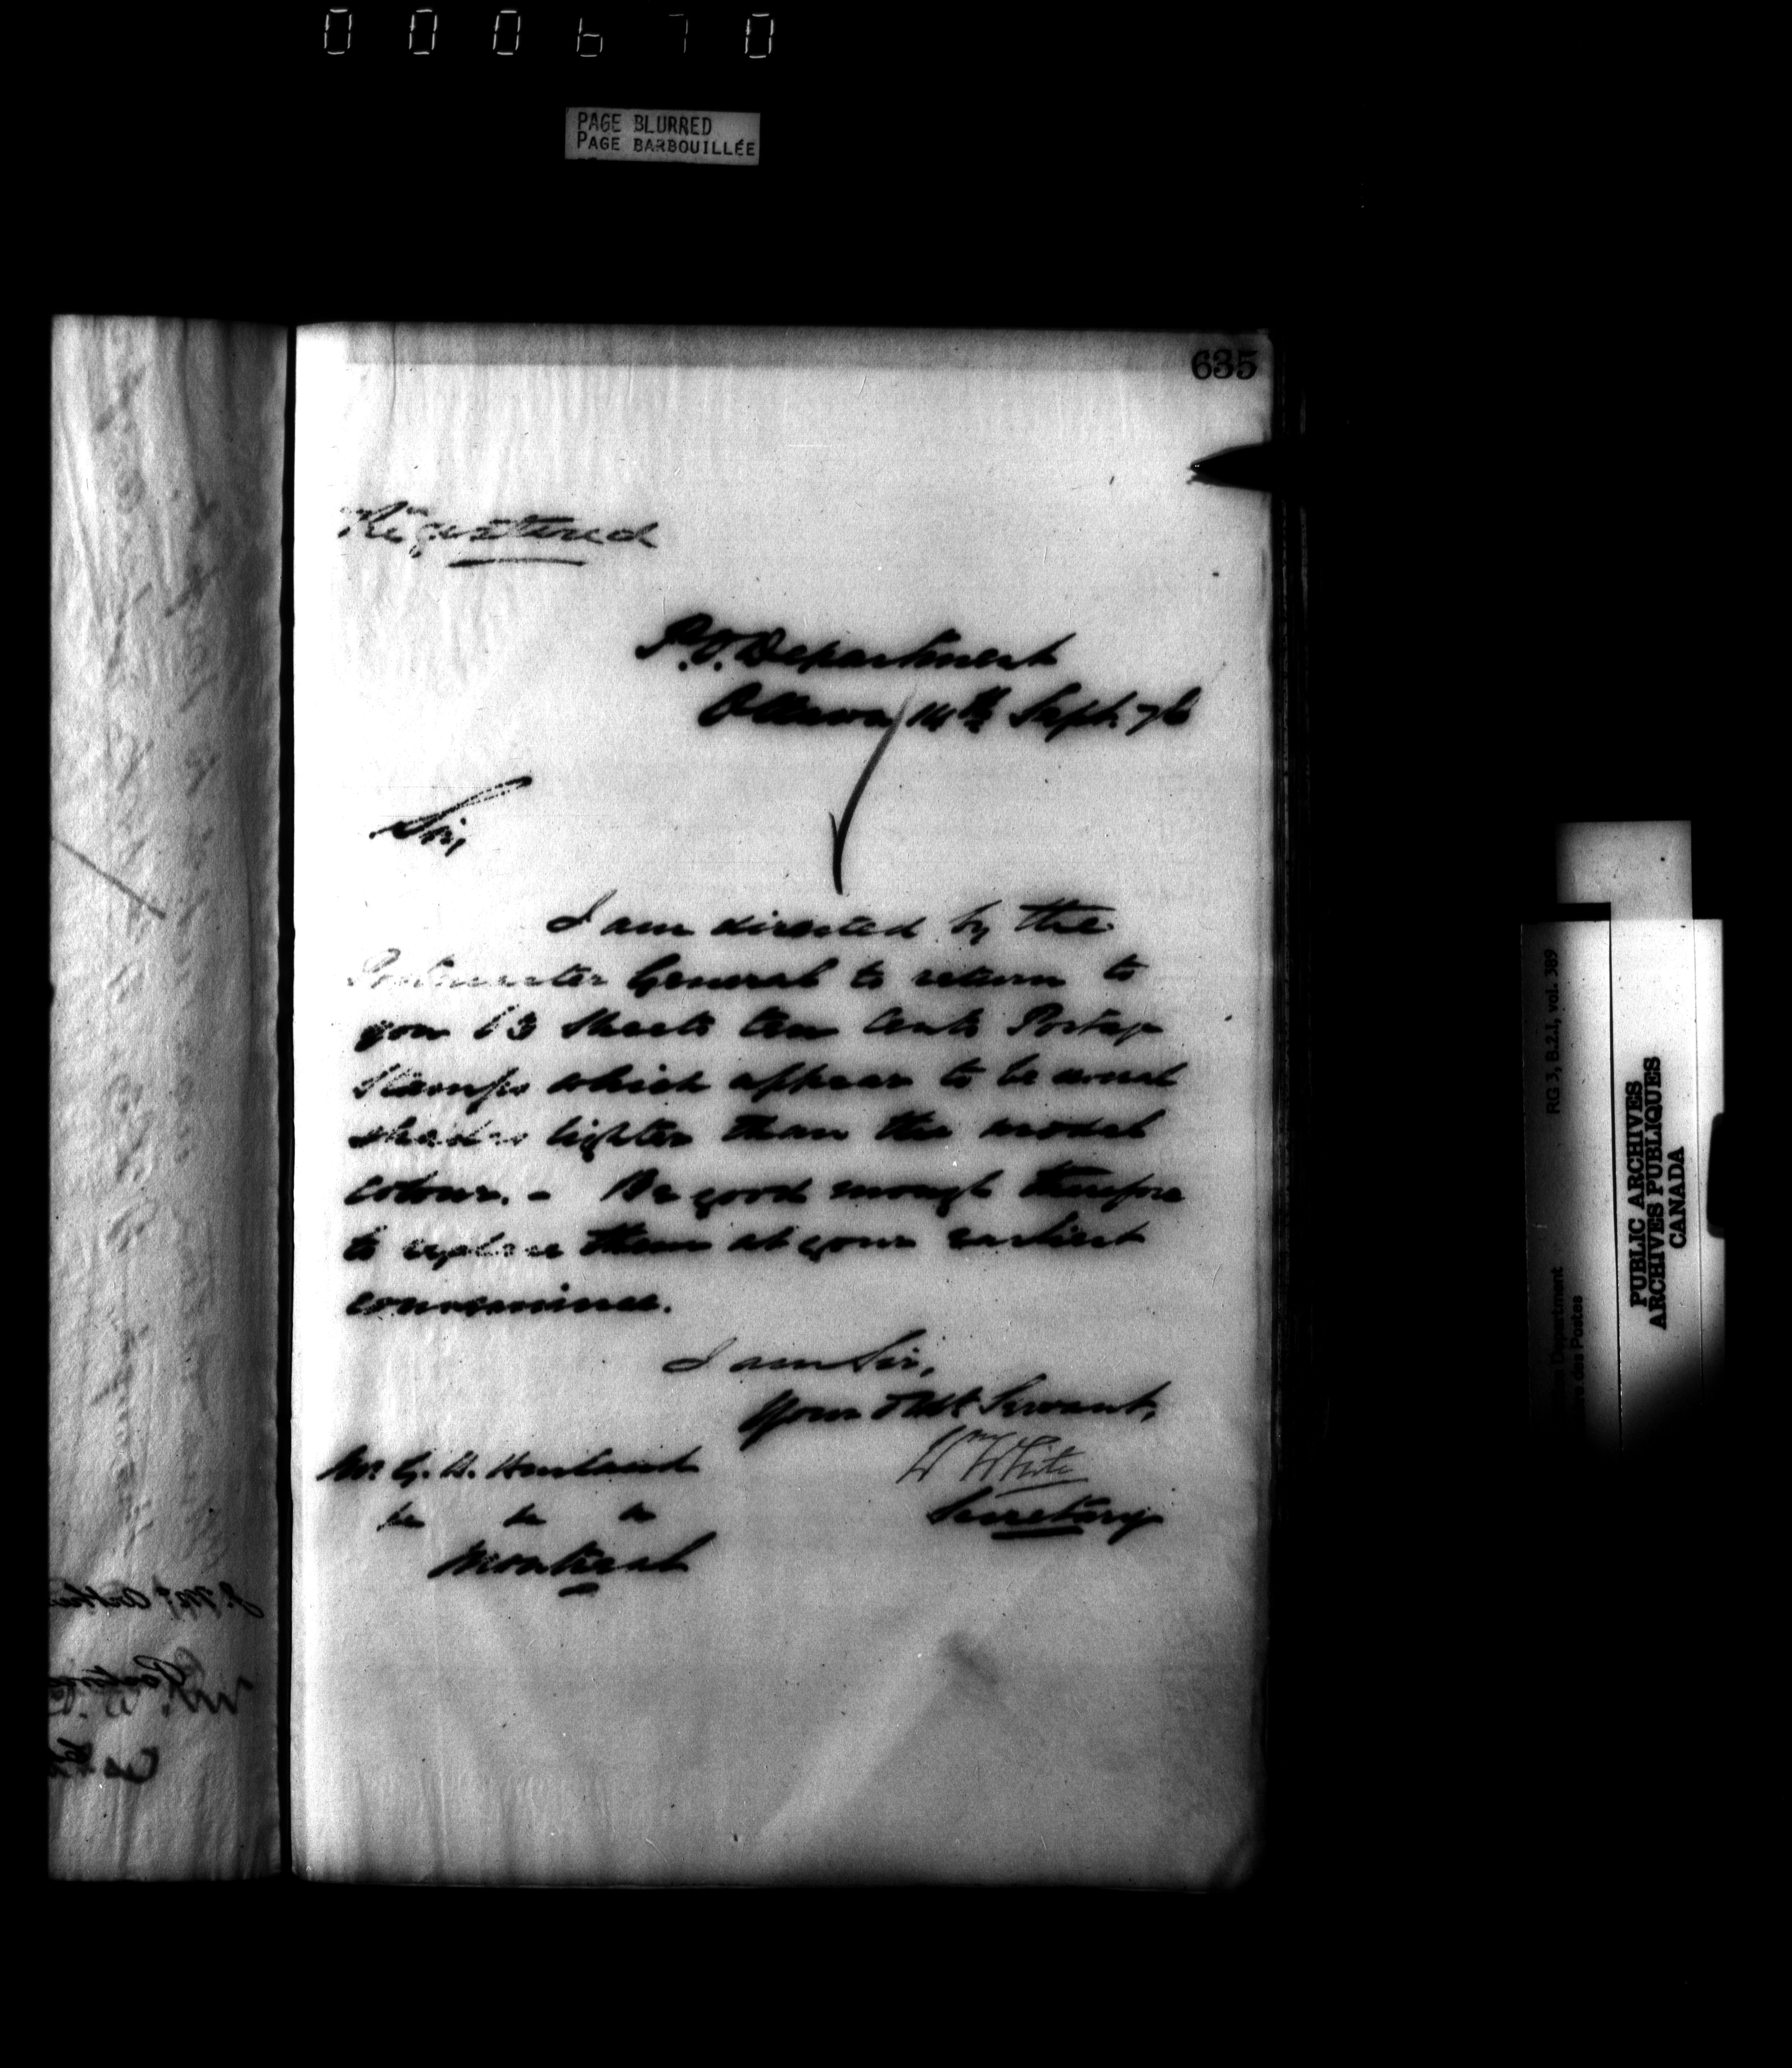 000670
PAGE BLURRED
PAGE BARBOUILLÉE
635
Registered
P.O. Department
Ottawa 14th Sept. 76
Sir,
I am directed by the
Postmaster General to return to
you 63 sheets ten cents Postage
Stamps which appear to be
shades lighter than the model
colour. - Be good enough therefore
to replace them at your earliest
convenience.
I am Sir,
Your Obdt Servant,
Wm White
Secretary
Mr G. H.
Montreal
RG 3, B.2.I, vol. 389
Department
des Postes
PUBLIC ARCHIVES
ARCHIVES PUBLIQUES
CANADA